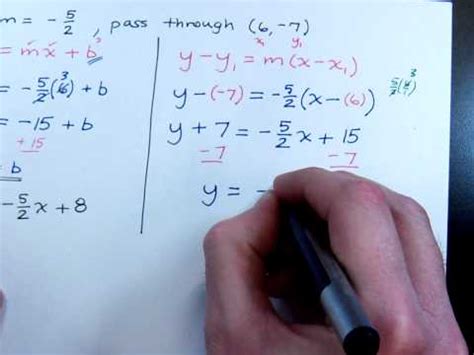 m = -5/2, pass through (6, -7)
x₁ y₁
= mx + b
= -5/2(6) + b
3
= -15 + b
+15
= b
-5/2x + 8
y - y₁ = m(x - x₁)
y - (-7) = -5/2(x - (6))
3
y + 7 = -5/2x + 15
-7 -7
y = -